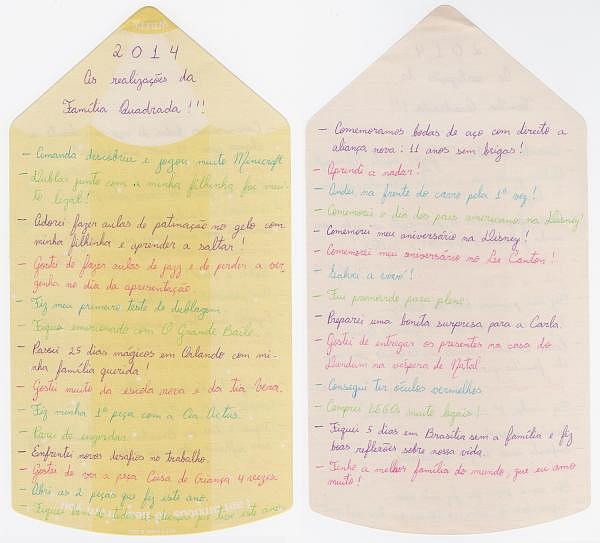 2014
As realizações da
Família Quadrada!!!
- Amanda descobriu e jogou muito Minecraft
- Dublar junto com a minha filhinha foi mui-
to legal!
- Adorei fazer aulas de patinação no gelo com
minha filhinha e aprender a saltar!
- Gostei de fazer aulas de jazz e de perder a ver
gonha no dia da apresentação.
- Fiz meu primeiro teste de dublagem.
- Fiquei emocionado com "O Grande Baile.
- Passei 25 dias mágicos em Orlando com mi-
nha família querida!
- Gostei muito da escola nova e da tia Vera.
- Fiz minha 1ª peça com a Cia. Actus.
- Parei de engordar.
- Enfrentei novos desafios no trabalho.
- Gostei de ver a peça Coisa de Criança 4 vezes.
- Abri as 2 peças que fiz este ano.
- Fiquei bem de todas as doenças que tive este ano.
- Comemoramos bodas de aço com direito a
aliança nova: 11 anos sem brigas!
- Aprendi a nadar!
- Andei na frente do carro pela 1ª vez!
- Comemorei o dia dos pais americano na Disney!
- Comemorei meu aniversário na Disney!
- Comemorei meu aniversário no Lee Canton!
- a vovó!
- Fui promovido para pleno.
- Preparei uma bonita surpresa para a Carla.
- Gostei de entregar os presentes na casa do
na véspera de Natal.
- Consegui ter óculos vermelhos
- Comprei LEGOs muito legais!
- Fiquei 5 dias em Brasília sem a família e fiz
boas reflexões sobre nossa vida.
- Tenho a melhor família do mundo, que eu amo
muito!